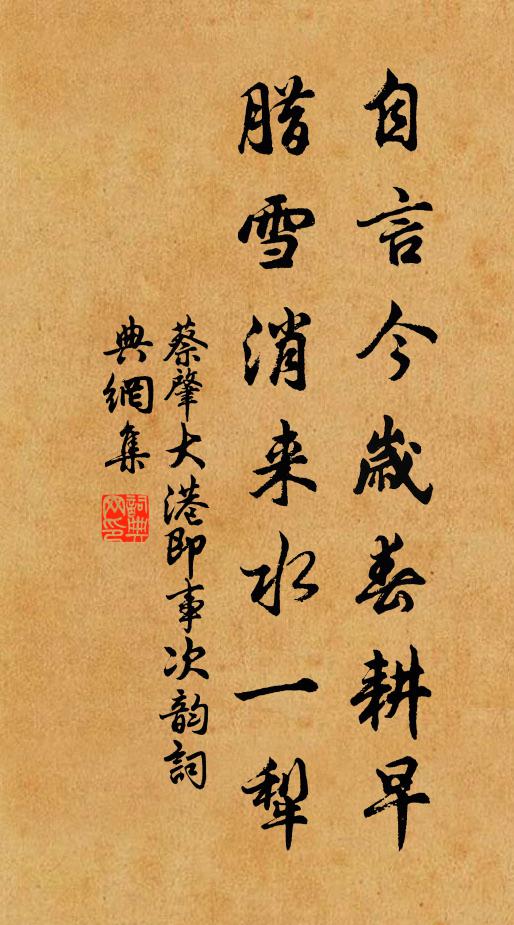 自言今歲春耕早
腊雪消来水一犁
蔡肇大港即事次韵詞
典網集
詞典
网印